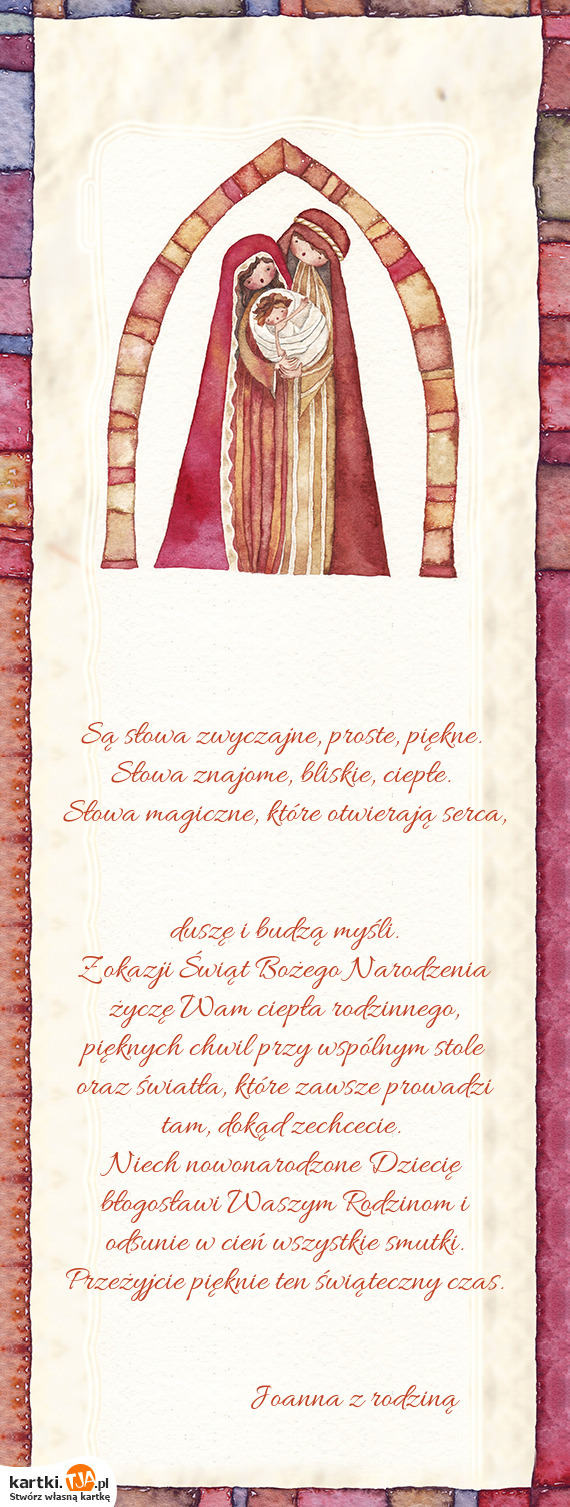 Są słowa zwyczajne, proste, piękne.
Słowa znajome, bliskie, ciepłe.
Słowa magiczne, które otwierają serca,
duszę i budzą myśli.
Z okazji Świąt Bożego Narodzenia
życzę Wam ciepła rodzinnego,
pięknych chwil przy wspólnym stole
oraz światła, które zawsze prowadzi
tam, dokąd zechcecie.
Niech nowonarodzone Dziecię
błogosławi Waszym Rodzinom i
odsunie w cień wszystkie smutki.
Przeżyjcie pięknie ten świąteczny czas.
Joanna z rodziną
kartki.TJA.pl
Stwórz własną kartkę